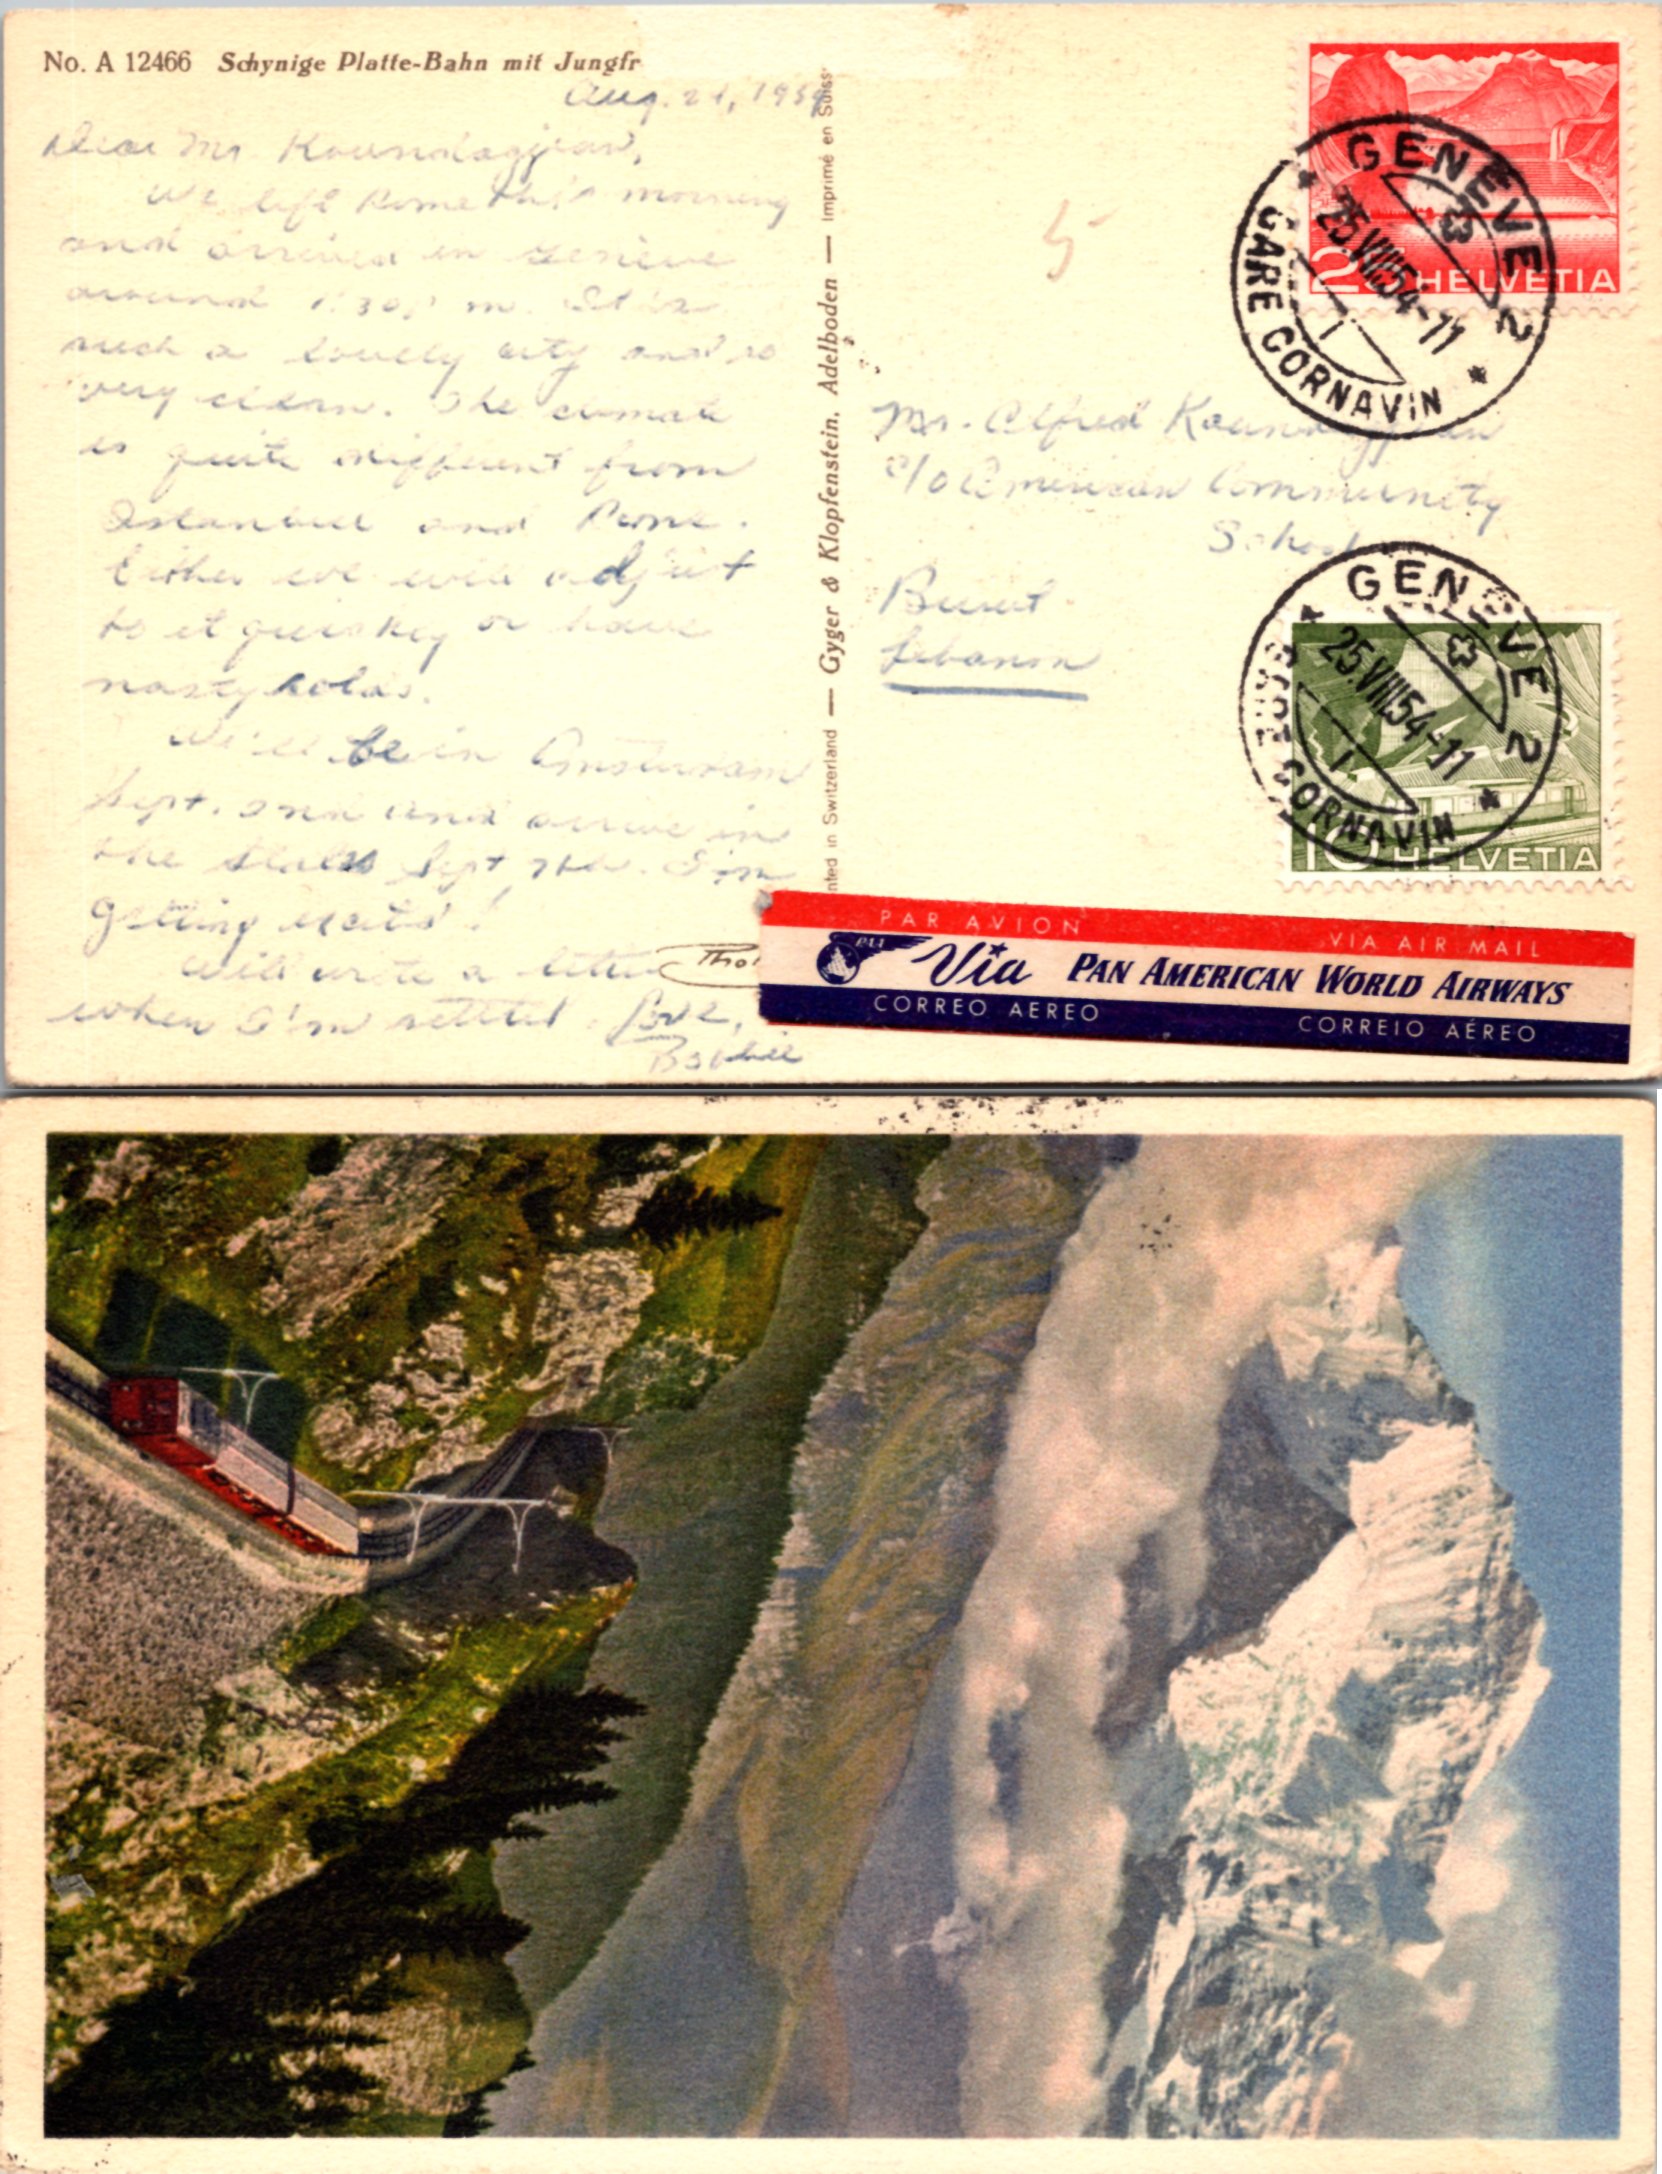 No. A 12466 Schynige Platte-Bahn mit Jungfr
Aug. 21, 1954
Dear Mr. Koundagjian,
We left Rome this morning
and arrived in Genève
around 1:30 m. It is
such a lovely city and so
very clean. The climate
is quite different from
Istanbul and Rome.
Either we will adjust
to it quickly or have
nasty colds.
We'll be in Amsterdam
Sept. 2nd and arrive in
the States Sept 7th. I'm
getting excited!
Will write a letter
when I'm settled. Love,
nted in Switzerland — Gyger & Klopfenstein, Adelboden — Imprimé en Suiss
Thor
5
HELVETIA
GENÈVE 2
25.VIII.54-11
GARE CORNAVIN
Mr. Alfred Koundagjian
c/o American Community
School
Beirut
Lebanon
GENÈVE 2
25.VIII.54-11
GARE CORNAVIN
10 HELVETIA
PAR AVION VIA AIR MAIL
Via PAN AMERICAN WORLD AIRWAYS
CORREO AEREO CORREIO AÉREO